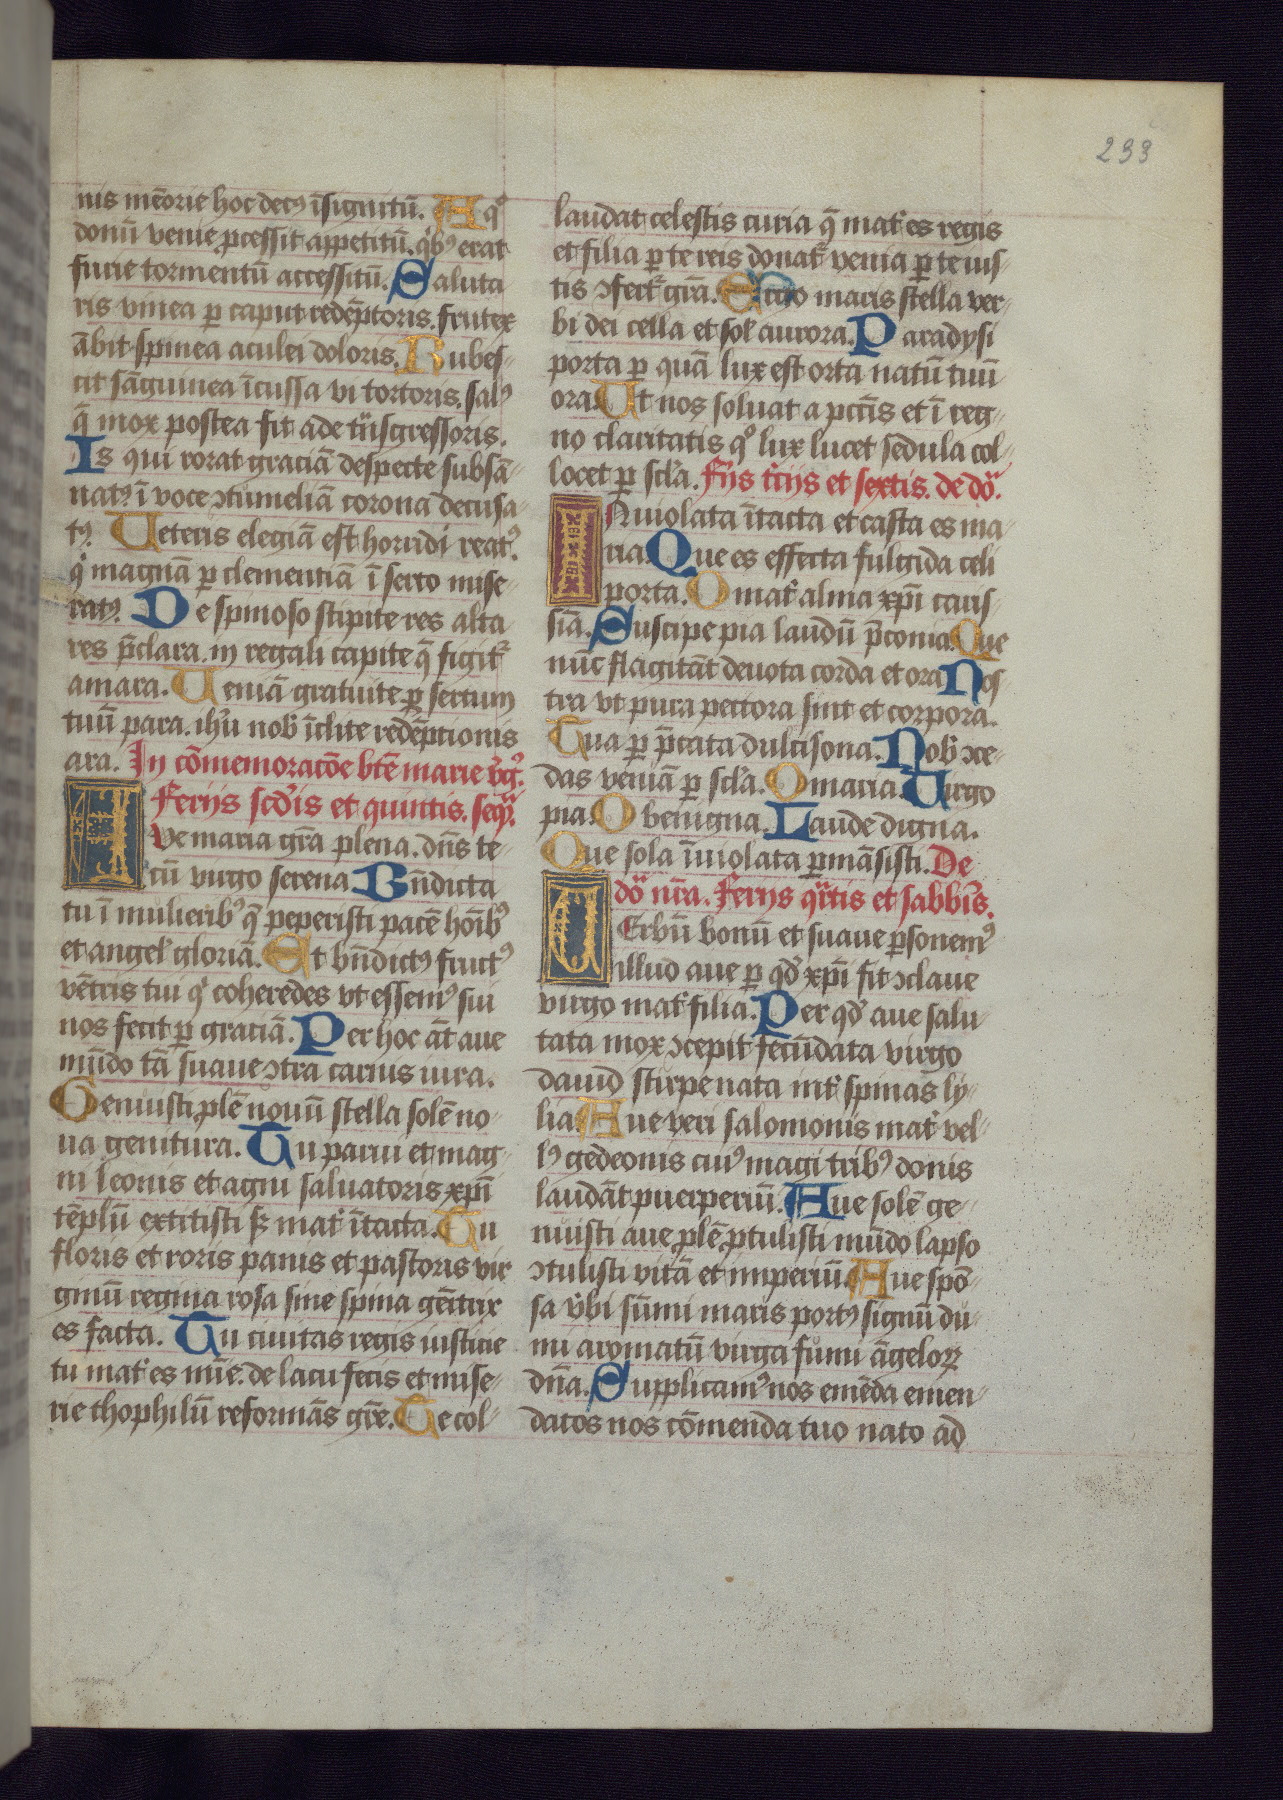 233
nis mēorie hoc decꝰ īsignitū. A qͦ
donū venie ꝓcessit appetitū. qͥbꝰ erat
furie tormentū accessitū. Saluta
ris vinea ꝑ caput redēptoris. frutex
ābit spinea aculei doloris. Rubes-
cit sāguinea īcussa vi tortoris. salꝰ
q̄ mox postea fit ade trāsgressoris.
Is qui rorat graciā despecte subsā-
natꝰ ī voce ꝯtumeliā corona decusa-
tꝰ. Veteris elegiā est horridi reatꝰ.
qͥ magnā ꝑ clementiā ī serto mise-
ratꝰ. De spinoso stipite res alta
res p̄clara. in regali capite q̄ figitᷣ
amara. Veniā gratuite ꝑ sertum
tuū para. ihū nob īclite redēptionis
ara. In cōmemoracōe btē marie v̓gꝰ.
Feriis scd̓is et quintis. seqͣ.
AVe maria gr̄a plena. dn̄s te-
cū virgo serena Bn̄dicta
tu ī mulieribꝰ q̄ peperisti pacē hoībꝰ
et angel̓ gloriā. Et bn̄dictꝰ fructꝰ
vētris tui qͥ coheredes vt essemꝰ sui
nos fecit ꝑ graciā. Per hoc āt aue
mūdo tā suaue ꝯtra carnis iura.
Genuisti ꝓlē nouū stella solē no-
ua genitura. Tu parui et mag-
ni leonis et agni saluatoris xp̄i
tēplū extitisti sꝫ mat̓ ītacta. Tu
floris et roris panis et pastoris vir
ginū regina rosa sine spina gētrix
es facta. Tu ciuitas regis iusticie
tu mat̓ es mīe. de lacu fecis et mise-
rie thophilū reformās gr̄e. Te col-
laudat celestis curia q̄ mat̓ es regis
et filia ꝑ te reis donat̓ venia ꝑ te ius-
tis ꝯfert̓ gr̄a. Ergo maris stella ver-
bi dei cella et sol̓ aurora. Paradysi
porta ꝑ quā lux est orta natū tuū
ora. Ut nos soluat a pctīs et ī reg-
no claritatis qͦ lux lucet sedula col-
locet ꝑ scl̓a. Fiis t̓ciis et sextis. de dōͣ.
INuiolata ītacta et casta es ma-
ria. Que es effecta fulgida celi
porta. O mat̓ alma xp̄i caris-
siā. Suscipe pia laudū p̄conia. Que
nūc flagitāt deuota corda et ora Nos
tra vt pura pectora sint et corpora.
Tua ꝑ p̄cata dulcisona. Nob ꝯce-
das veniā ꝑ scl̓a. O maria. Uirgo
pia. O benigna. Laude digna.
Que sola īuiolata ꝑmāsisti. De
dōͣ nr̄a. Feriis qͣrtis et sabbis.
UErbū bonū et suaue ꝑsonemꝰ
illud aue ꝑ qd̓ xp̄i fit ꝯclaue
virgo mat̓ filia. Per qd̓ aue salu-
tata mox ꝯcepit fecūdata virgo
dauid stirpe nata int̓ spinas ly-
lia. Aue veri salomonis mat̓ vel-
lꝰ gedeonis cuiꝰ magi tribꝰ donis
laudāt puerperiū. Aue solē ge-
nuisti aue ꝓlē ꝓtulisti mūdo lapso
ꝯtulisti vitā et imperiū. Aue spō-
sa v̓bi sūmi maris portꝰ signū du-
mi aromatū virga fumi āgeloꝝ
dn̄a. Supplicamꝰ nos emēda emen-
datos nos cōmenda tuo nato ad